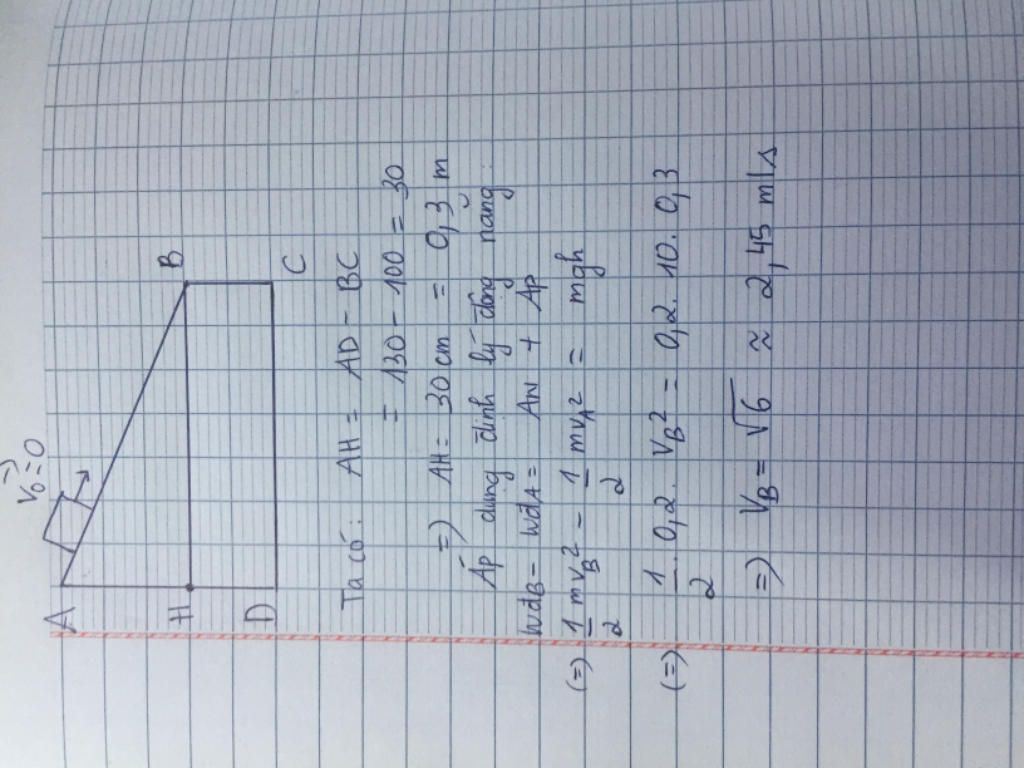 V₀ = 0
A
B
H
D
C
Ta có: AH = AD - BC
= 130 - 100 = 30
=) AH = 30 cm = 0,3 m
Áp dụng định lý động năng:
WđB - WđA = AN + AP
(=) 1/2 mvB² - 1/2 mvA² = mgh
(=) 1/2 . 0,2 . VB² = 0,2 . 10 . 0,3
=) VB = √6 ≈ 2,45 m/s